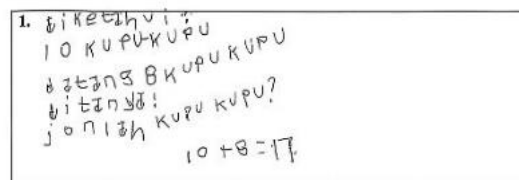 1. diketahui:
10 KUPU-KUPU
datang 8 KUPU KUPU
ditanya:
jomlah KUPU KUPU?
10 + 8 = 17